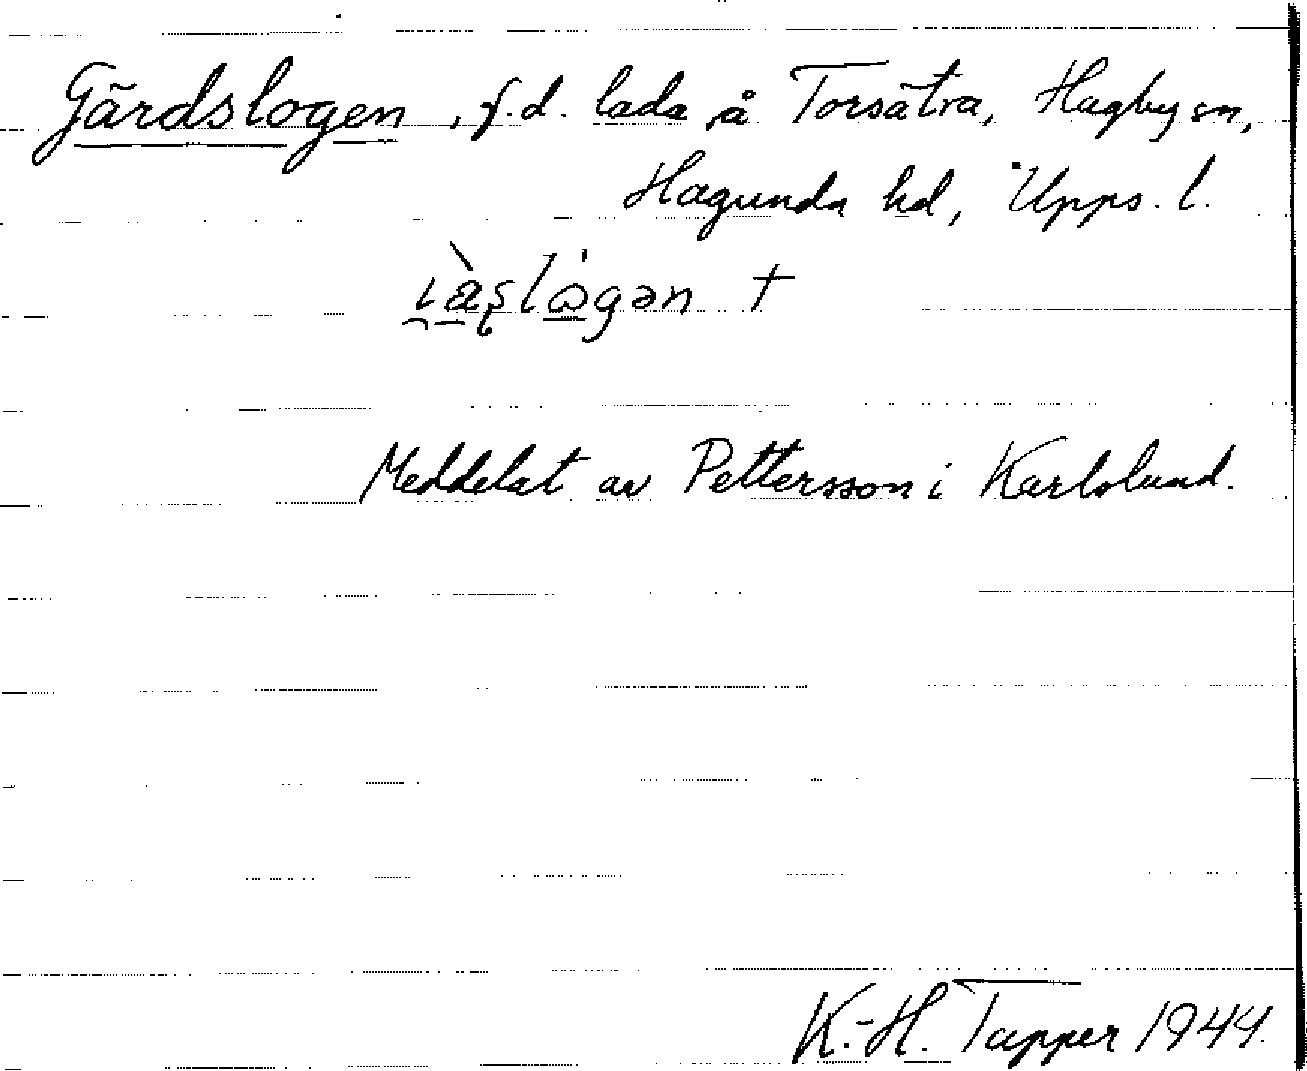 Gärdslogen, f.d. lada å Torsätra, Hagby sn,
Hagunda hd, Upps. l.
Meddelat av Pettersson i Karlslund.
K.-H. Tapper 1944.